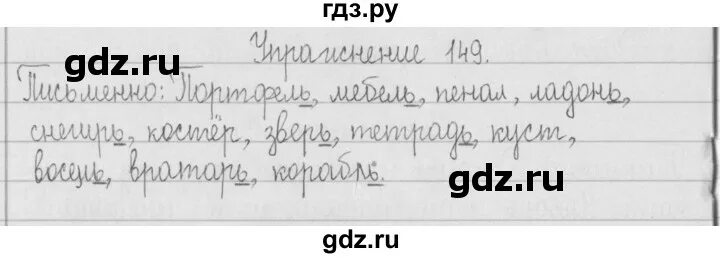 гдз.ру
gdz.ru
Упражнение 149.
Письменно: Портфель, мебель, пенал, ладонь,
снегирь, костёр, зверь, тетрадь, куст,
восемь, вратарь, корабль.
gdz.ru
gdz.ru